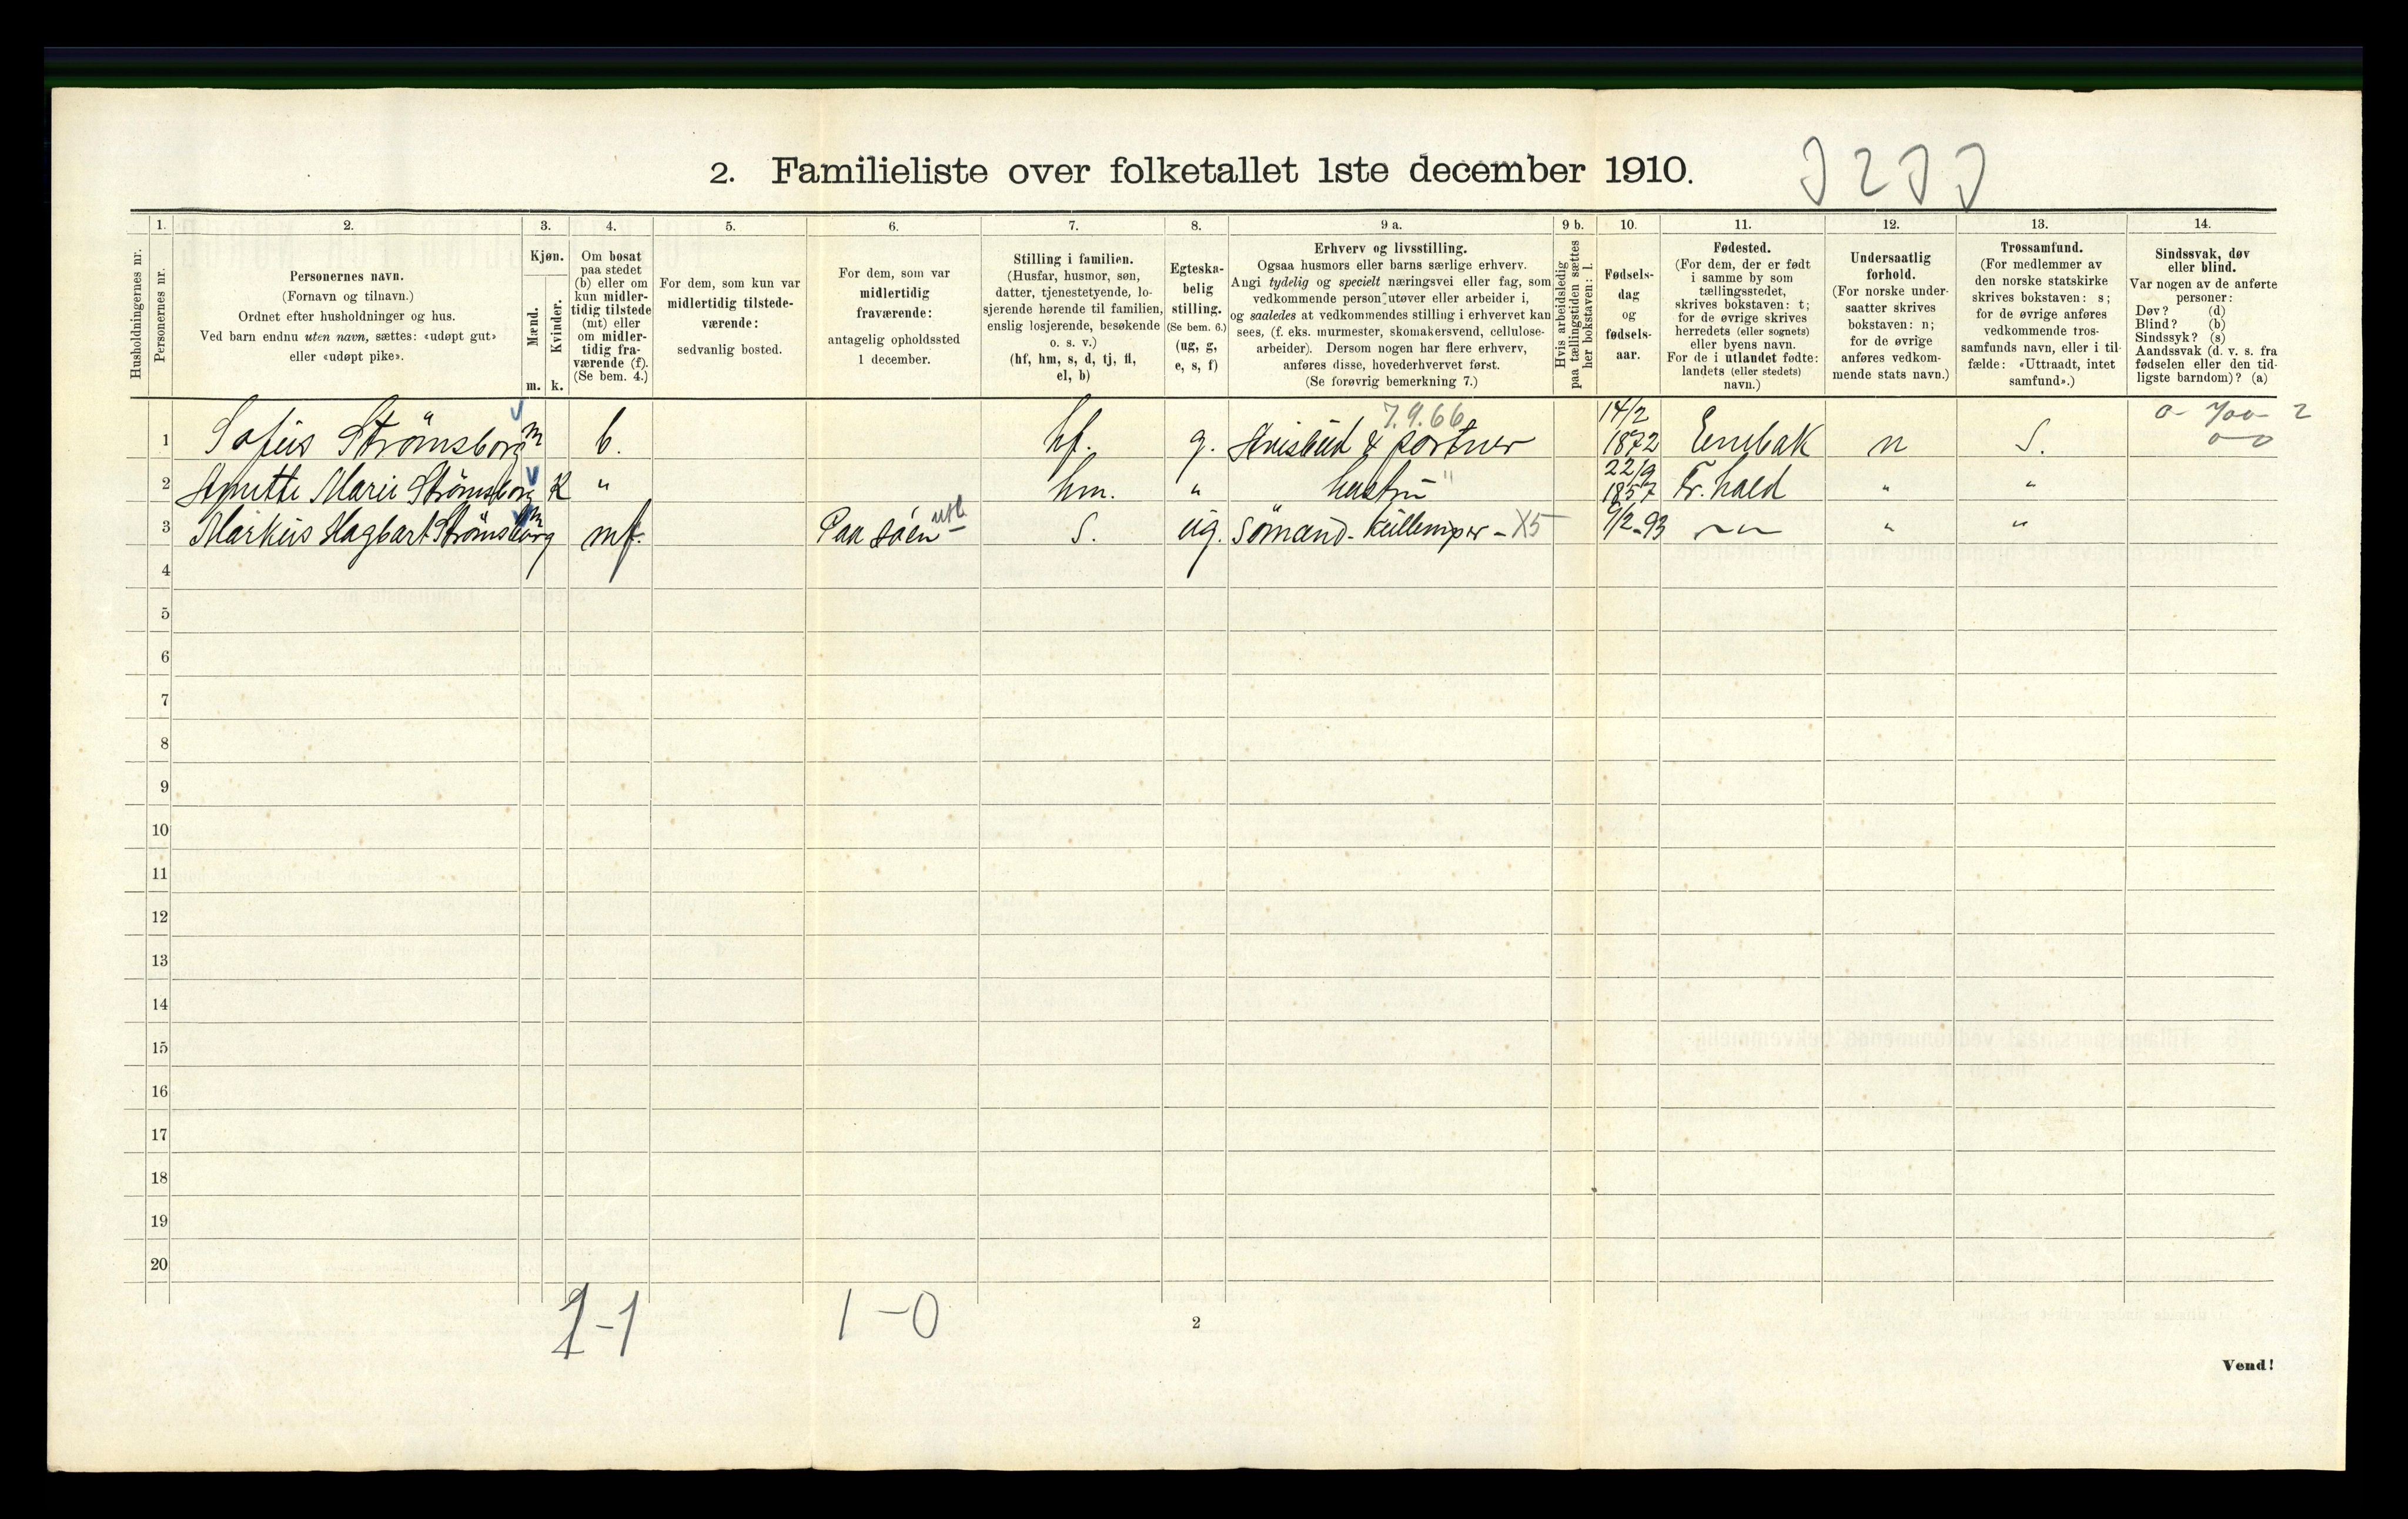 2. Familieliste over folketallet 1ste december 1910.
1. 2. 3. 4. 5. 6. 7. 8. 9 a. 9 b. 10. 11. 12. 13. 14.
Husholdningernes nr.
Personernes nr.
Personernes navn.
(Fornavn og tilnavn.)
Ordnet efter husholdninger og hus.
Ved barn endnu uten navn, sættes: «udøpt gut»
eller «udøpt pike».
Kjøn.
Mænd.
Kvinder.
m. k.
Om bosat
paa stedet
(b) eller om
kun midler-
tidig tilstede
(mt) eller
om midler-
tidig fra-
værende (f).
(Se bem. 4.)
For dem, som kun var
midlertidig tilstede-
værende:
sedvanlig bosted.
For dem, som var
midlertidig
fraværende:
antagelig opholdssted
1 december.
Stilling i familien.
(Husfar, husmor, søn,
datter, tjenestetyende, lo-
sjerende hørende til familien,
enslig losjerende, besøkende
o. s. v.)
(hf, hm, s, d, tj, fl,
el, b)
Egteska-
belig
stilling.
(Se bem. 6.)
(ug, g,
e, s, f)
Erhverv og livsstilling.
Ogsaa husmors eller barns særlige erhverv.
Angi tydelig og specielt næringsvei eller fag, som
vedkommende person utøver eller arbeider i,
og saaledes at vedkommendes stilling i erhvervet kan
sees, (f. eks. murmester, skomakersvend, cellulose-
arbeider). Dersom nogen har flere erhverv,
anføres disse, hovederhvervet først.
(Se forøvrig bemerkning 7.)
Hvis arbeidsledig
paa tællingstiden sættes
her bokstaven: l.
Fødsels-
dag
og
fødsels-
aar.
Fødested.
(For dem, der er født
i samme by som
tællingsstedet,
skrives bokstaven: t;
for de øvrige skrives
herredets (eller sognets)
eller byens navn.
For de i utlandet fødte:
landets (eller stedets)
navn.)
Undersaatlig
forhold.
(For norske under-
saatter skrives
bokstaven: n;
for de øvrige
anføres vedkom-
mende stats navn.)
Trossamfund.
(For medlemmer av
den norske statskirke
skrives bokstaven: s;
for de øvrige anføres
vedkommende tros-
samfunds navn, eller i til-
fælde: «Uttraadt, intet
samfund».)
Sindssvak, døv
eller blind.
Var nogen av de anførte
personer:
Døv? (d)
Blind? (b)
Sindssyk? (s)
Aandssvak (d. v. s. fra
fødselen eller den tid-
ligste barndom)? (a)
7.9.66
1 Sofus Strømsborg m b. hf. g. & portner 14/2 1872 Enebak n S.
2 Anette Marie Strømsborg K " hm. " hustru 22/9 1857 Fr.hald " "
3 Markus Hagbart Strømsborg m mf. Paa søen utl S. ug. Sømand - Kullemper - X5 9/2-93 " "
4
5
6
7
8
9
10
11
12
13
14
15
16
17
18
19
20
1-1 1-0
2
Vend!